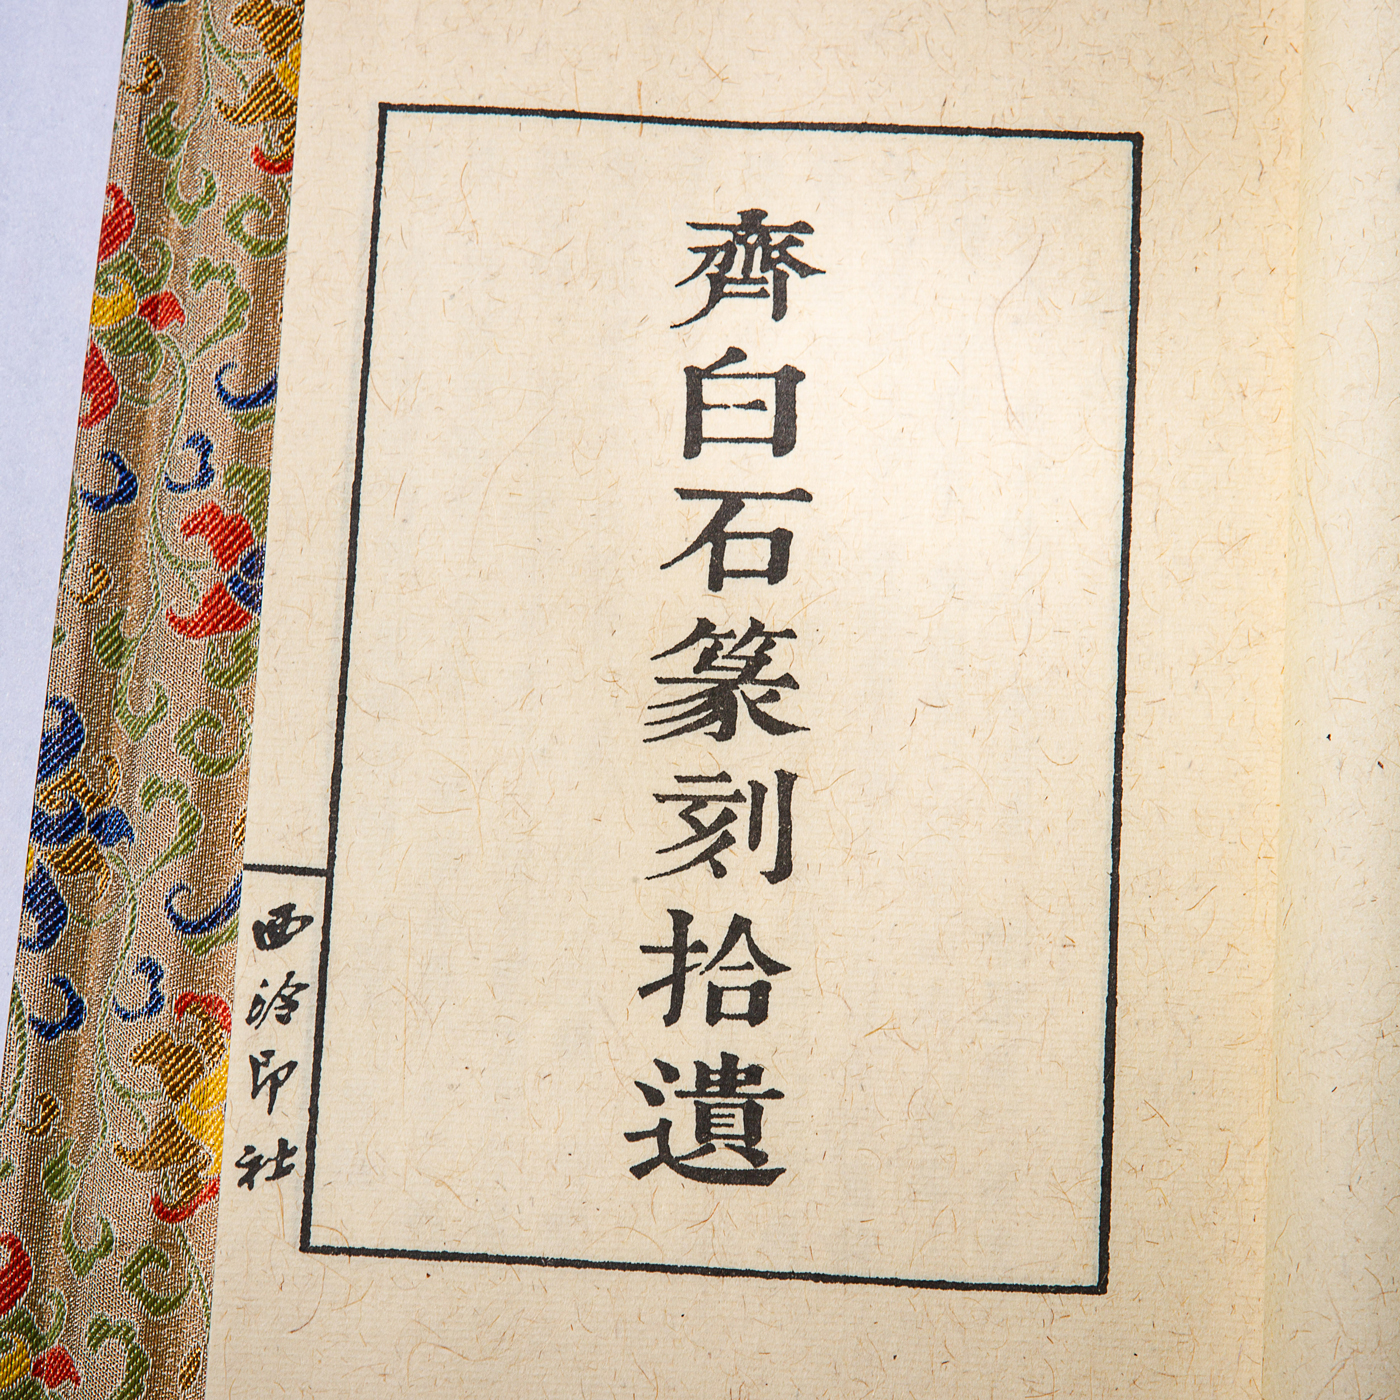 齊白石篆刻拾遺
西泠印社